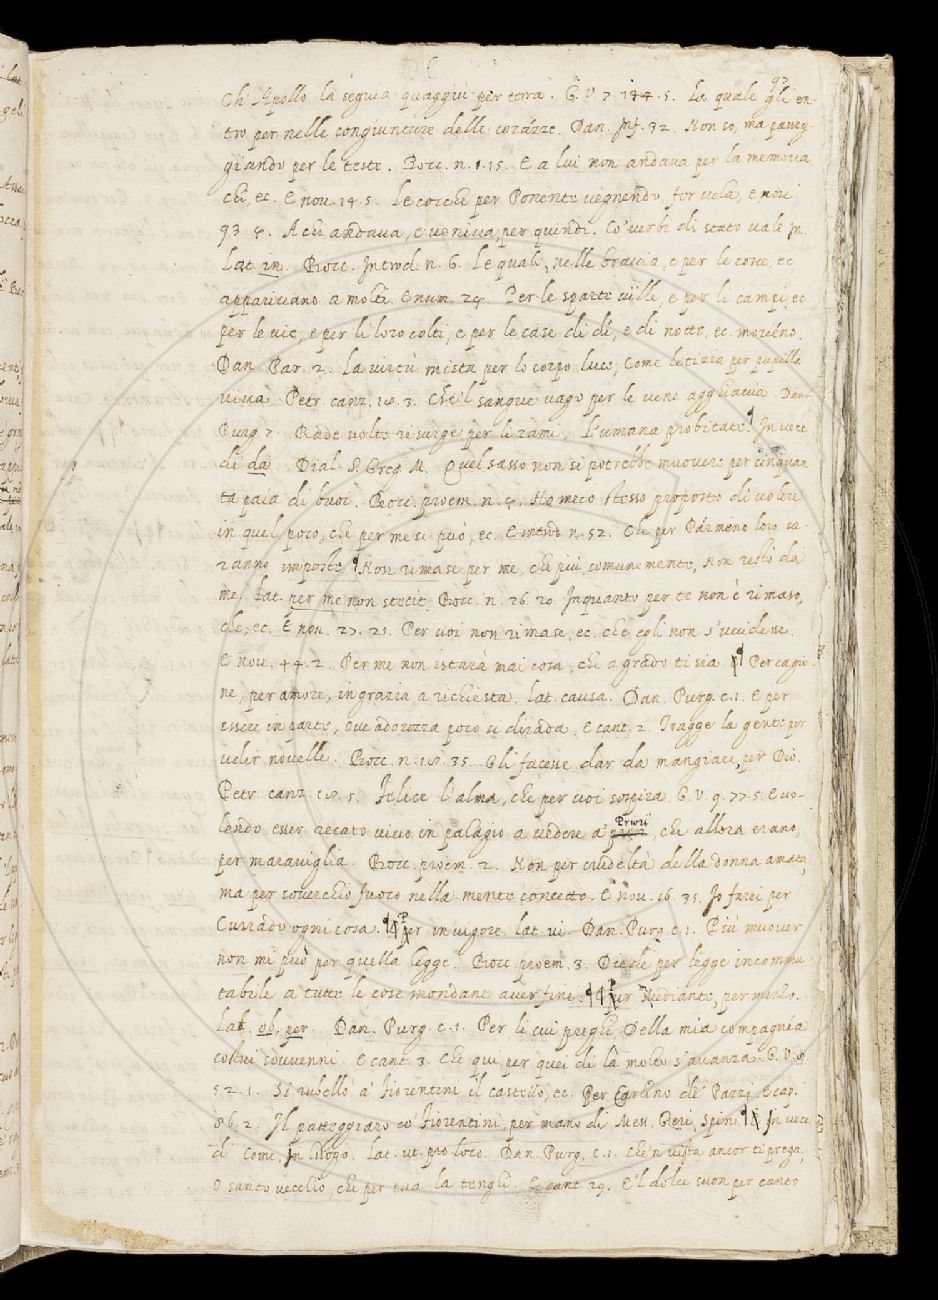 97
Ch' Apollo la seguia quaggiù per terra. G. V. 7. 144. 5. La quale gli en-
tro per nelle congiunture delle corazze. Dan. Inf. 32. Non so, ma passeg-
giando per le teste. Bocc. n. 1. 15. E a lui non andava per la memoria
chi, ec. E nov. 14. 5. Le cocche per Ponente vegnendo, for vela, e nov.
93. 4. A chi andava, e veniva per quindi. Co' verbi di stato vale In.
Lat. in. Bocc. Introd. n. 6. Le quali, nelle braccia, e per le cosce, ec
apparivano a molti. E num. 24. Per le sparte ville, e per li campi, ec
per le vie, e per li loro colti, e per le case di dì, e di notte, ec. moriéno.
Dan. Par. 2. La virtù mista per lo corpo luce, Come letizia per pupilla
viva. Petr. canz. 18. 3. Che 'l sangue vago per le vene agghiaccia. Dan.
Purg. 7. Rade volte risurge per li rami, L'umana probitate. ¶ In vece
di da. Dial. S. Greg. M. Quel sasso non si potrebbe muovere per cinquan
ta paia di buoi. Bocc. proem. n. 4. Ho meco stesso proposto di volere
in quel poco, che per me si può, ec. E introd. n. 52. Che per Parmeno loro sa-
ranno imposte. ¶ Non rimase per me, che più comunemente, Non restò da
me. Lat. per me non stetit. Bocc. n. 26. 20. Inquanto per te non è rimaso,
che, ec. E nov. 27. 21. Per voi non rimase, ec. che egli non s'uccidesse.
E nov. 44. 2. Per me non istarà mai cosa, che a grado ti sia. ¶ Per cagio
ne, per amore, in grazia a richiesta. Lat. causa. Dan. Purg. c. 1. E per
essere in parte, ove adorezza poco si dirada. E cant. 2. Tragge la gente per
udir novelle. Bocc. n. 18. 35. Gli facesse dar da mangiare, per Dio.
Petr. canz. 18. 5. Felice l'alma, che per voi sospira. G. V. 9. 77. 5. E vo-
lendo esser recato vivo in palagio a vedere a' Priori, che allora erano,
per maraviglia. Bocc. proem. 2. Non per crudeltà della donna amata,
ma per soverchio fuoco nella mente concetto. E nov. 16. 35. Io farei per
Currado ogni cosa. ¶ Per in vigore. Lat. vi. Dan. Purg. c. 1. Più muover
non mi può per quella legge. Bocc. proem. 3. Diede per legge incommu
tabile a tutte le cose mondane aver fine. ¶ Per Mediante, per mezzo.
Lat. ob. per. Dan. Purg. c. 1. Per li cui preghi Della mia compagnia
costui sovvenni. E cant. 3. Che qui per quei di là molto s'avanza. G. V. 9.
52. 1. Si rubellò a' Fiorentini il castello, ec. Per Carlino de' Pazzi. E cap.
86. 2. Il patteggiaro co' Fiorentini, per mano di Mess. Geri Spini. ¶ In vece
di Come, In luogo. Lat. ut. pro loco. Dan. Purg. c. 1. Che 'n vista ancor ti prega,
O santo vecchio, che per tua la tenghi. E cant. 29. E 'l dolce suon per canto